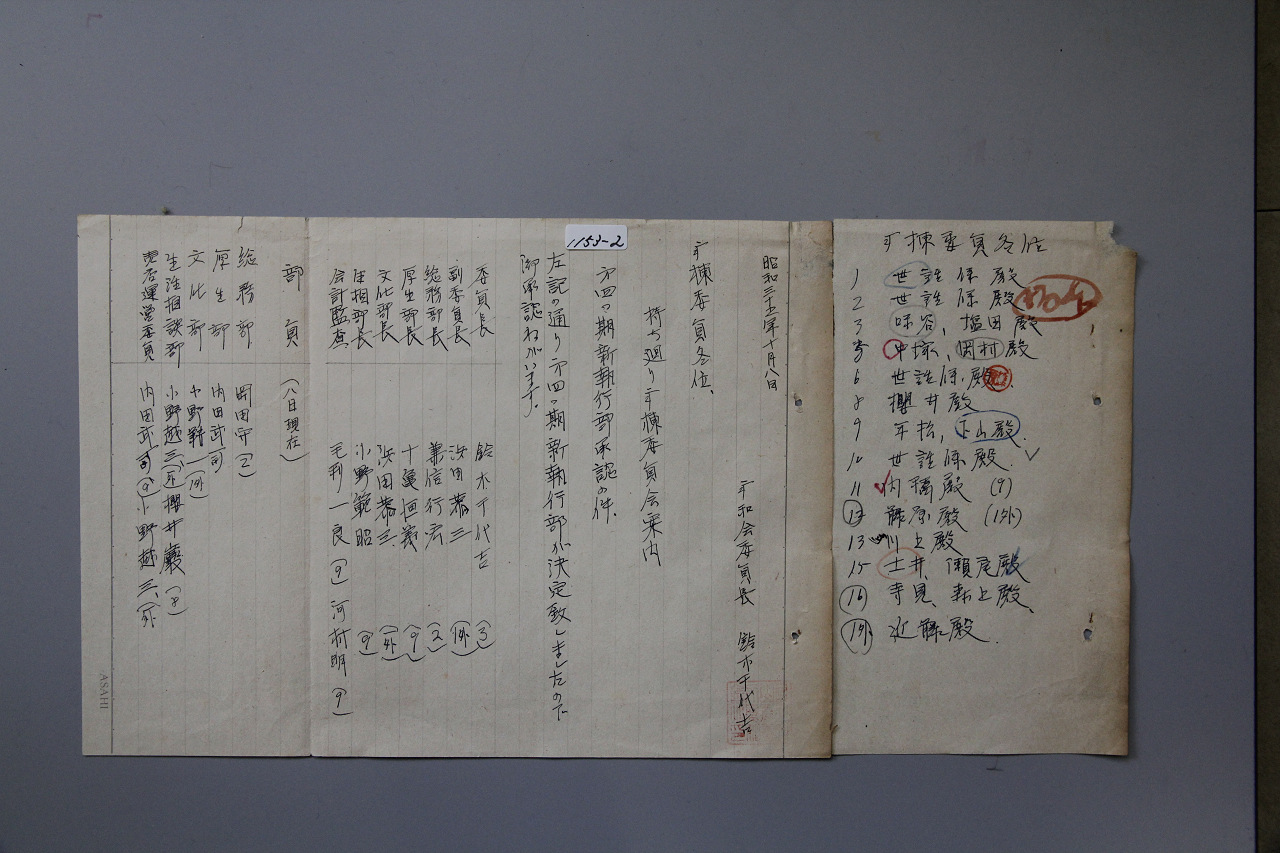 1153-2
棟委員各位
1 世話係殿
2 世話係殿
3 味谷、塩田殿
5 中塚、岡村殿
6 世話係殿
8 櫻井殿
9 年松、下山殿
10 世話係殿
11 内殿 (9)
12 藤原殿 (1外)
13 川上殿
15 土井、瀬尾殿
16 寺見、井上殿
1外 近藤殿
昭和三十五年十月八日
和会委員長 鈴木千代吉
棟委員各位、
持ち廻り棟委員会案内
才四期新執行部承認の件、
左記の通り才四期新執行部が決定致しましたので
御承認ねがいます。
委員長 鈴木千代吉 (3)
副委員長 浜田恭三 (1外)
総務部長 兼信行宏 (2)
厚生部長 十亀恒義 (9)
文化部長 浜田恭三 (1外)
生相部長 小野範昭 (9)
会計監査 毛利一良 (9) 河村明 (9)
部員 (八日現在)
総務部 岡田守 (2)
厚生部 内田武司 (9)
文化部 小野 (1外)
生活相談部 小野越三 (1外) 櫻井巌 (8)
運営委員 内田武司 (9) 小野越三、(1外)
ASAHI